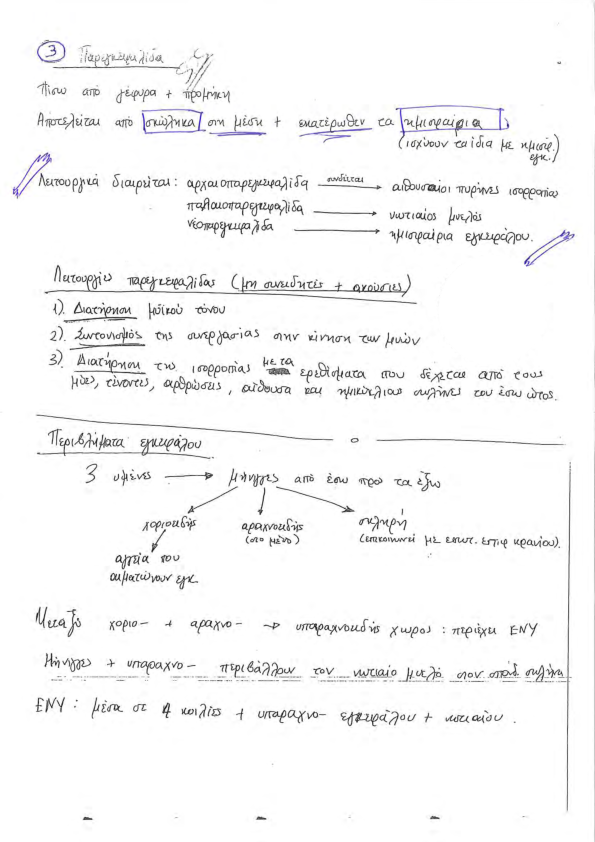 3 Παρεγκεφαλίδα
Πίσω από γέφυρα + προμήκη
Αποτελείται από σκώληκα στη μέση + εκατέρωθεν τα ημισφαίρια
(ισχύουν τα ίδια με ημισφ. εγκ.)
Λειτουργικά διαιρείται: αρχαιοπαρεγκεφαλίδα συνδέεται → αιθουσαίοι πυρήνες ισορροπίας
παλαιοπαρεγκεφαλίδα → νωτιαίος μυελός
νεοπαρεγκεφαλίδα → ημισφαίρια εγκεφάλου.
Λειτουργίες παρεγκεφαλίδας (μη συνειδητές + ακούσιες)
1). Διατήρηση μυϊκού τόνου
2). Συντονισμός της συνεργασίας στην κίνηση των μυών
3). Διατήρηση της ισορροπίας με τα ερεθίσματα που δέχεται από τους
μύες, τένοντες, αρθρώσεις, αίθουσα και ημικύκλιους σωλήνες του έσω ωτός.
Περιβλήματα εγκεφάλου
3 υμένες → μήνιγγες από έσω προς τα έξω
χοριοειδής αραχνοειδής σκληρή
(στο μέσο) (επικοινωνεί με εσωτ. επιφ κρανίου).
αγγεία που
αιματώνουν εγκ.
Μεταξύ χοριο- + αραχνο- → υπαραχνοειδής χώρος: περιέχει ΕΝΥ
Μήνιγγες + υπαραχνο- περιβάλλουν τον νωτιαίο μυελό στον σπονδ. σωλήνα
ΕΝΥ: μέσα σε 4 κοιλίες + υπαραχνο- εγκεφάλου + νωτιαίου.